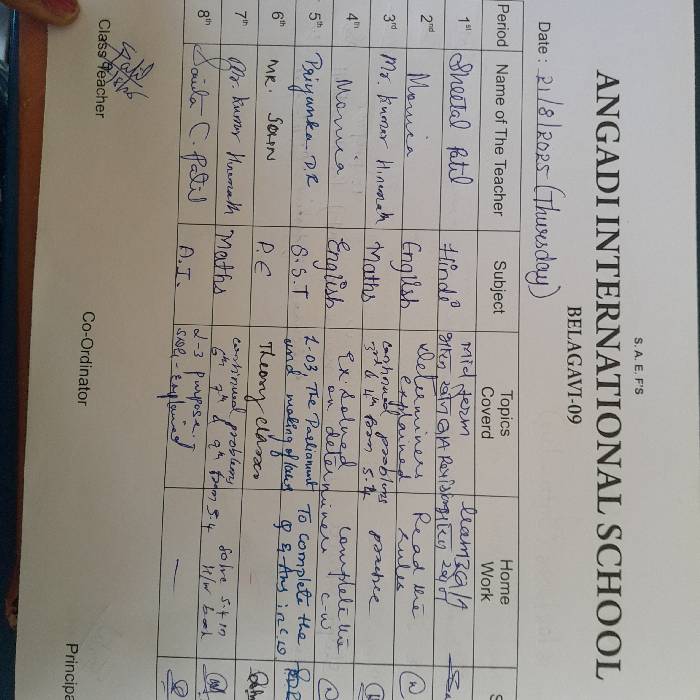 S. A. E. F'S
ANGADI INTERNATIONAL SCHOOL
BELAGAVI-09
Date : 21/8/2025 (Thursday)
Period Name of The Teacher Subject Topics Coverd Home Work S
1st Sheetal Patil Hindi mid term Learn 3 Q/A
2nd Monica English determiners explained Read the rules
3rd Mr. Kumar Hiremath Maths continued problems 3rd & 4th from 5.4 practice
4th Monica English Ex. Solved on determiners complete the c-w
5th Priyanka. D.R S.S.T 2.03, The Parliament and making of laws To complete the Q & Ans in c.w
6th MR. P.E Theory classes
7th Mr. Kumar Hiremath Maths continued problems 6th 7th & 9th from 5.4 Solve 5.4 in H/w book
8th C. Patil A.I. 2-3 purpose explained —
Class Teacher Co-Ordinator Principa